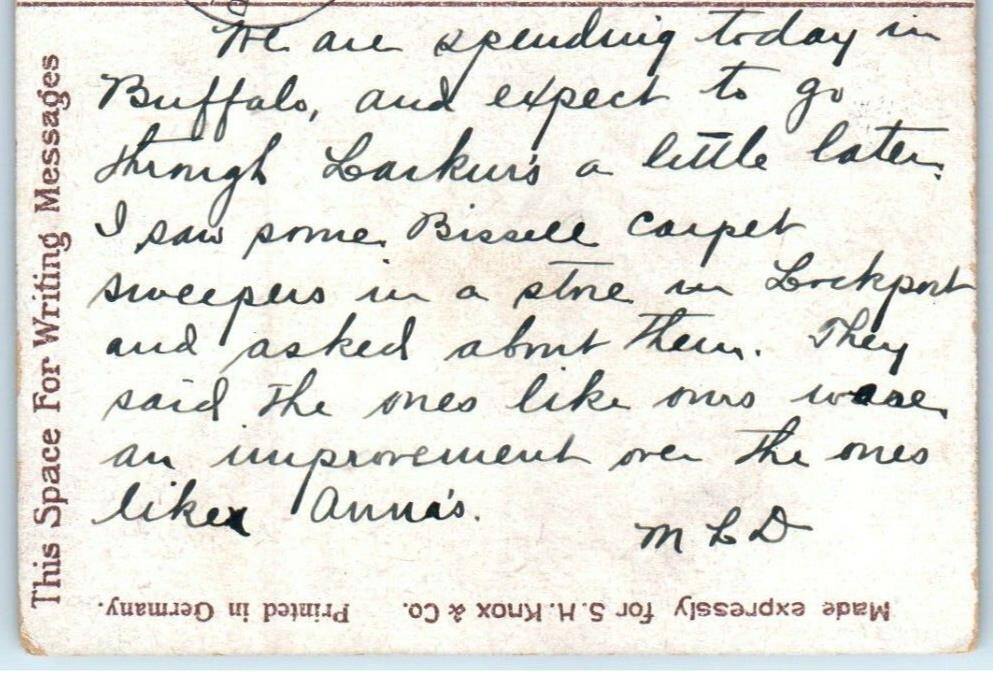 We are spending today in
Buffalo, and expect to go
through Larkin's a little later.
I saw some Bissell carpet
sweepers in a store in Lockport
and asked about them. They
said the ones like ours were
an improvement over the ones
like Anna's.
M L D
This Space For Writing Messages
Made expressly for S. H. Knox & Co. Printed in Germany.